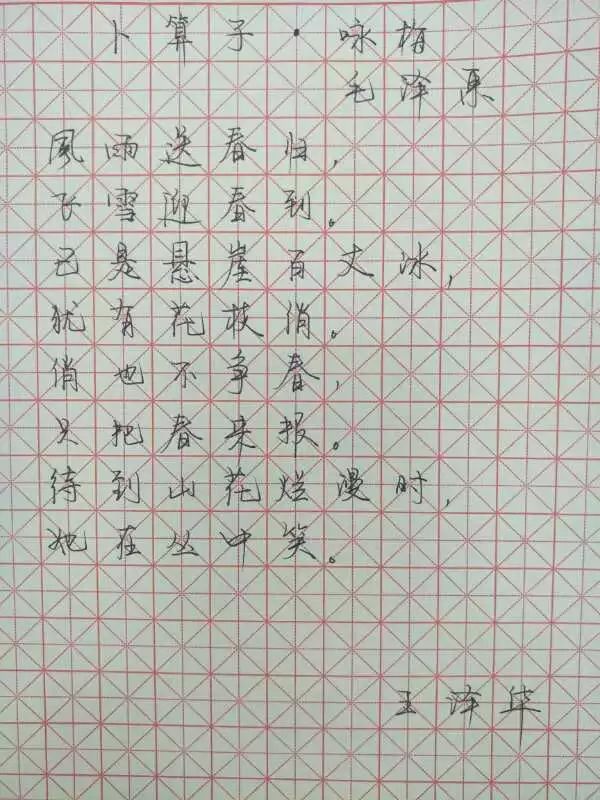 卜算子·咏梅
毛泽东
風雨送春归，
飞雪迎春到。
已是悬崖百丈冰，
犹有花枝俏。
俏也不争春，
只把春来报。
待到山花烂漫时，
她在丛中笑。
王泽华